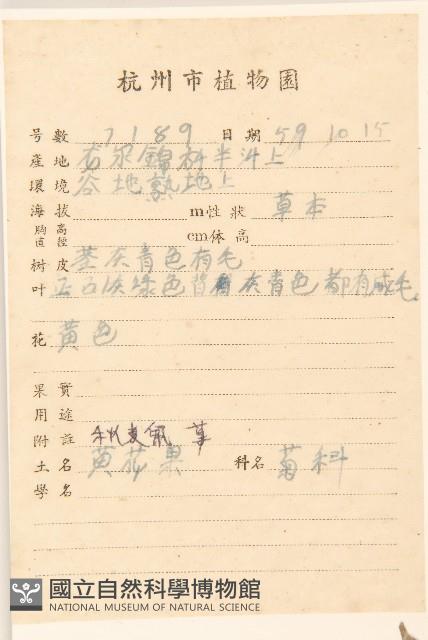 杭州市植物園
号數 7189 日期 59 10 15
產地 龙泉錦村半斗上
環境 谷地熟地上
海拔 m性狀 草本
胸高直徑 cm体高
树皮 茎灰青色有毛
叶 正面淡绿色背 灰青色都有 毛
花 黃色
果實
用途
附註 秋
土名 黄花果 科名 菊科
學名
國立自然科學博物館
NATIONAL MUSEUM OF NATURAL SCIENCE